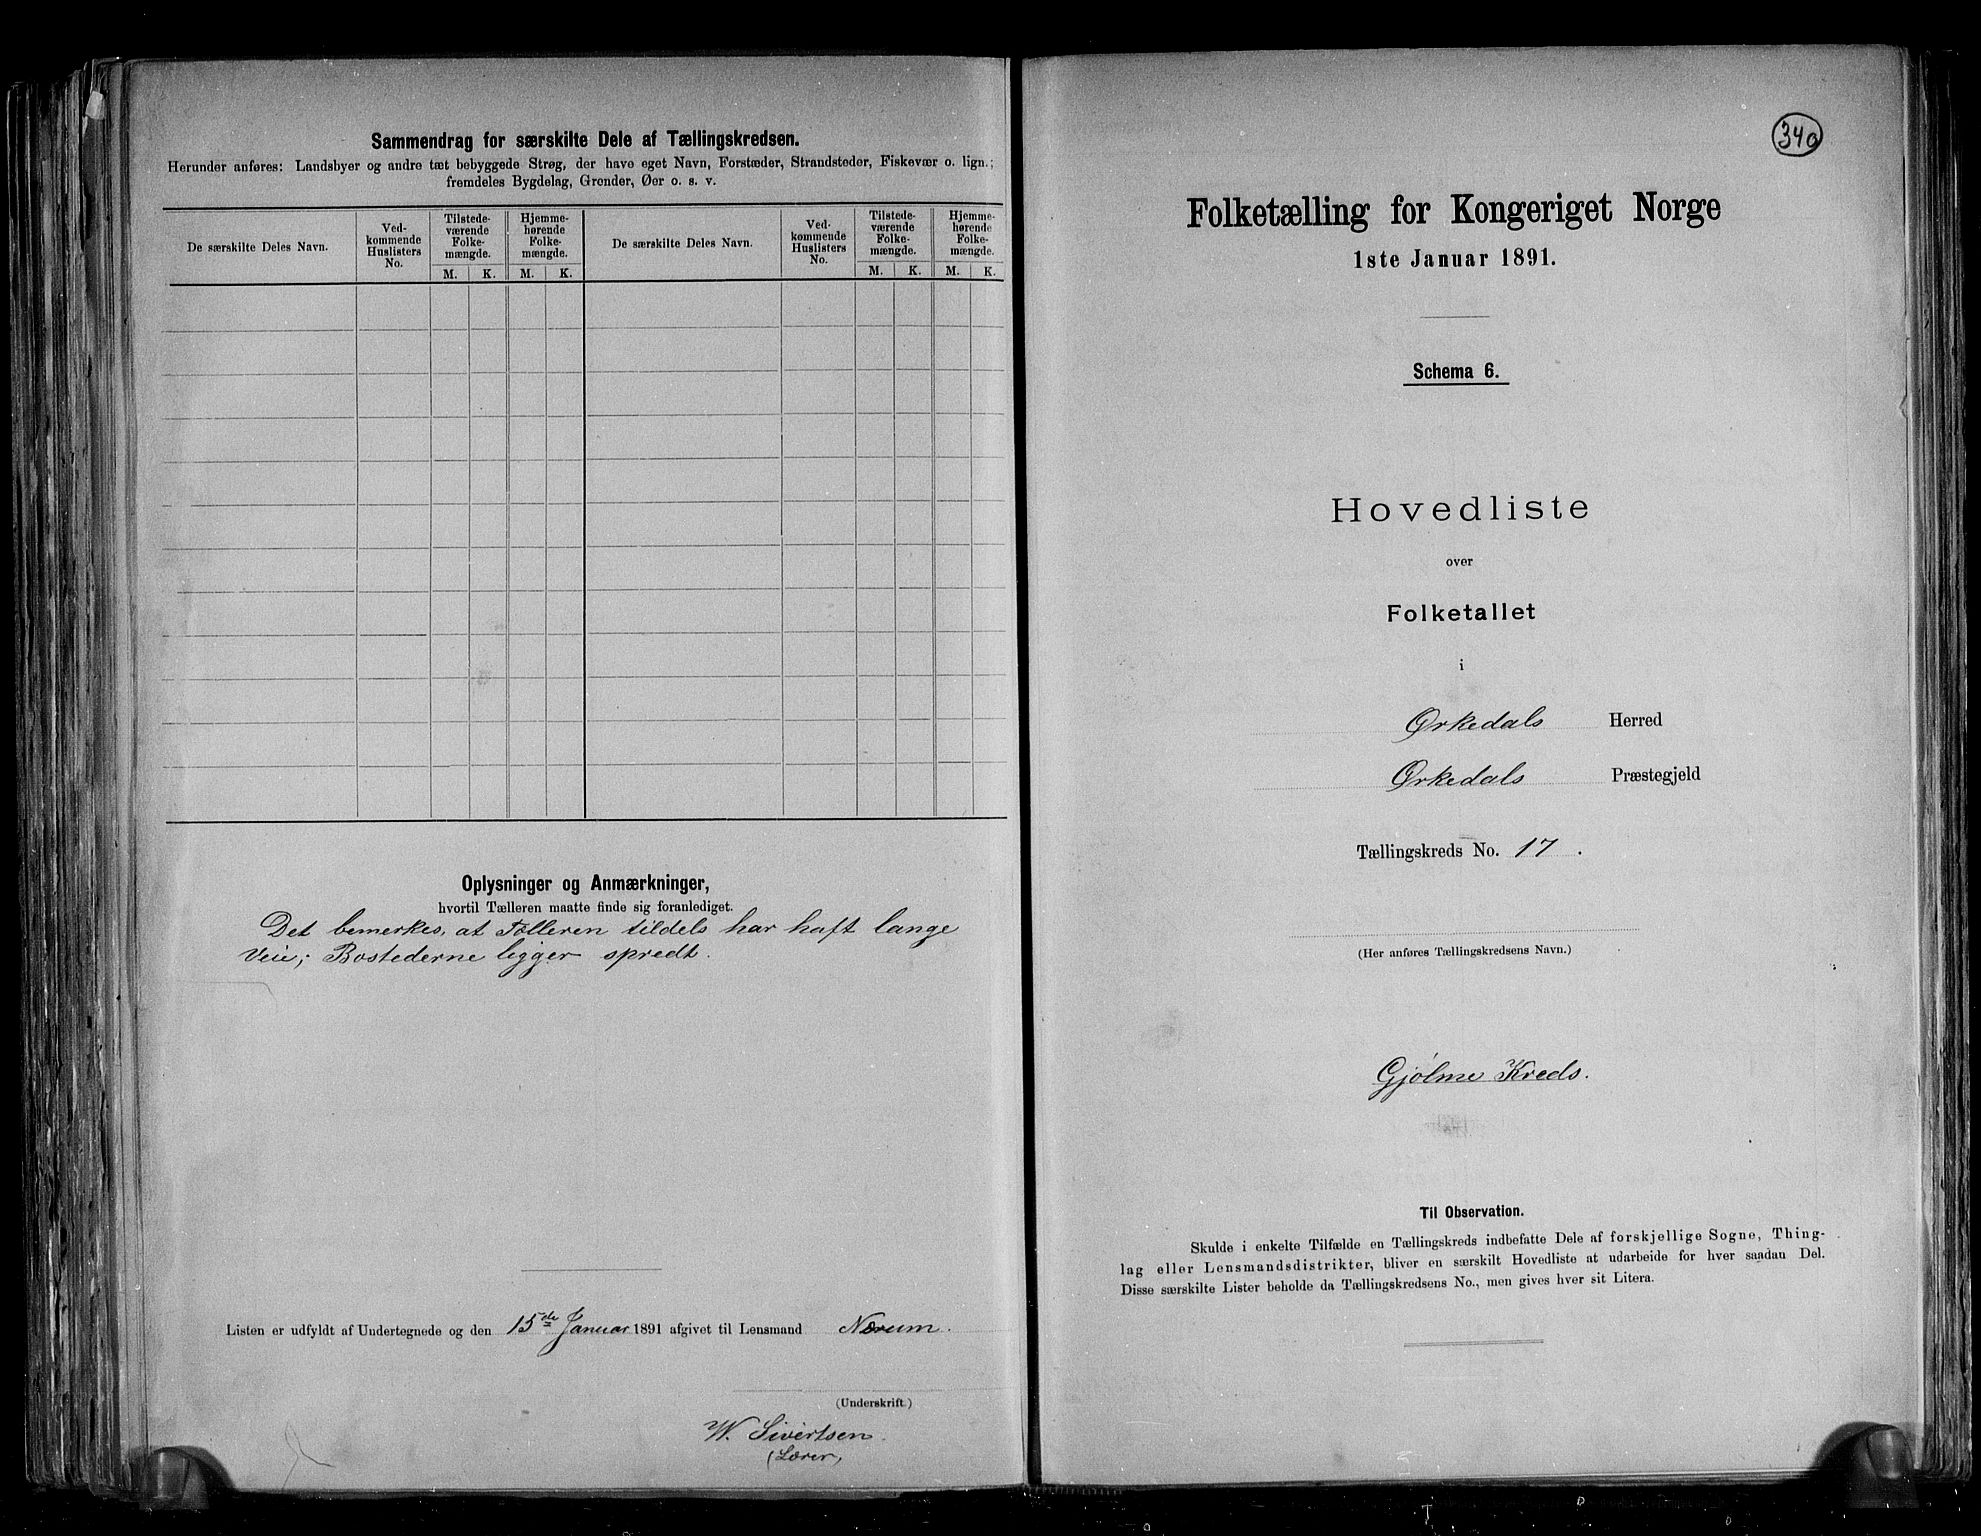 Sammendrag for særskilte Dele af Tællingskredsen.
Herunder anføres: Landsbyer og andre tæt bebyggede Strøg, der have eget Navn, Forstæder, Strandsteder, Fiskevær o. lign.;
fremdeles Bygdelag, Grender, Øer o. s. v.
De særskilte Deles Navn.
Ved-
kommende
Huslisters
No.
Tilstede-
værende
Folke-
mængde.
Hjemme-
hørende
Folke-
mængde.
De særskilte Deles Navn.
Ved-
kommende
Huslisters
No.
Tilstede-
værende
Folke-
mængde.
Hjemme-
hørende
Folke-
mængde.
M. K. M. K. M. K. M. K.
Oplysninger og Anmærkninger,
hvortil Tælleren maatte finde sig foranlediget.
Det bemerkes, at Tælleren tildels har haft lange
Veie; Bostederne ligger spredt.
Listen er udfyldt af Undertegnede og den 15de Januar 1891 afgivet til Lensmand Nærum.
(Underskrift.)
W. Sivertsen.
(Lærer)
340
Folketælling for Kongeriget Norge
1ste Januar 1891.
Schema 6.
Hovedliste
over
Folketallet
i
Ørkedals Herred
Ørkedals Præstegjeld
Tællingskreds No. 17.
(Her anføres Tællingskredsens Navn.)
Gjølme Kreds.
Til Observation.
Skulde i enkelte Tilfælde en Tællingskreds indbefatte Dele af forskjellige Sogne, Thing-
lag eller Lensmandsdistrikter, bliver en særskilt Hovedliste at udarbeide for hver saadan Del.
Disse særskilte Lister beholde da Tællingskredsens No., men gives hver sit Litera.